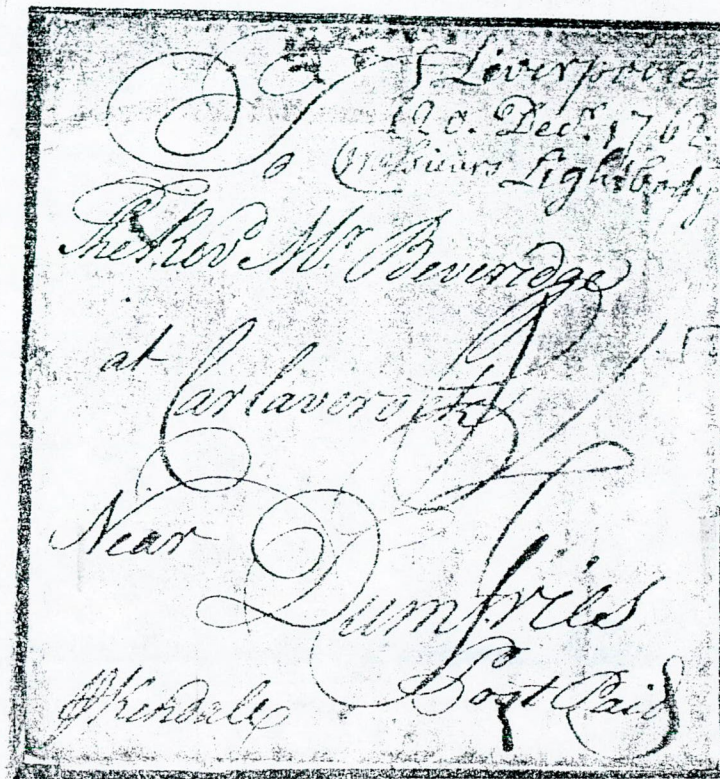 To Liverpoole
Decr. 1762.
Messieurs Lightbody
The Revd. Mr. Beveridge
at Carlaverock
Near
Dumfries
Post Paid